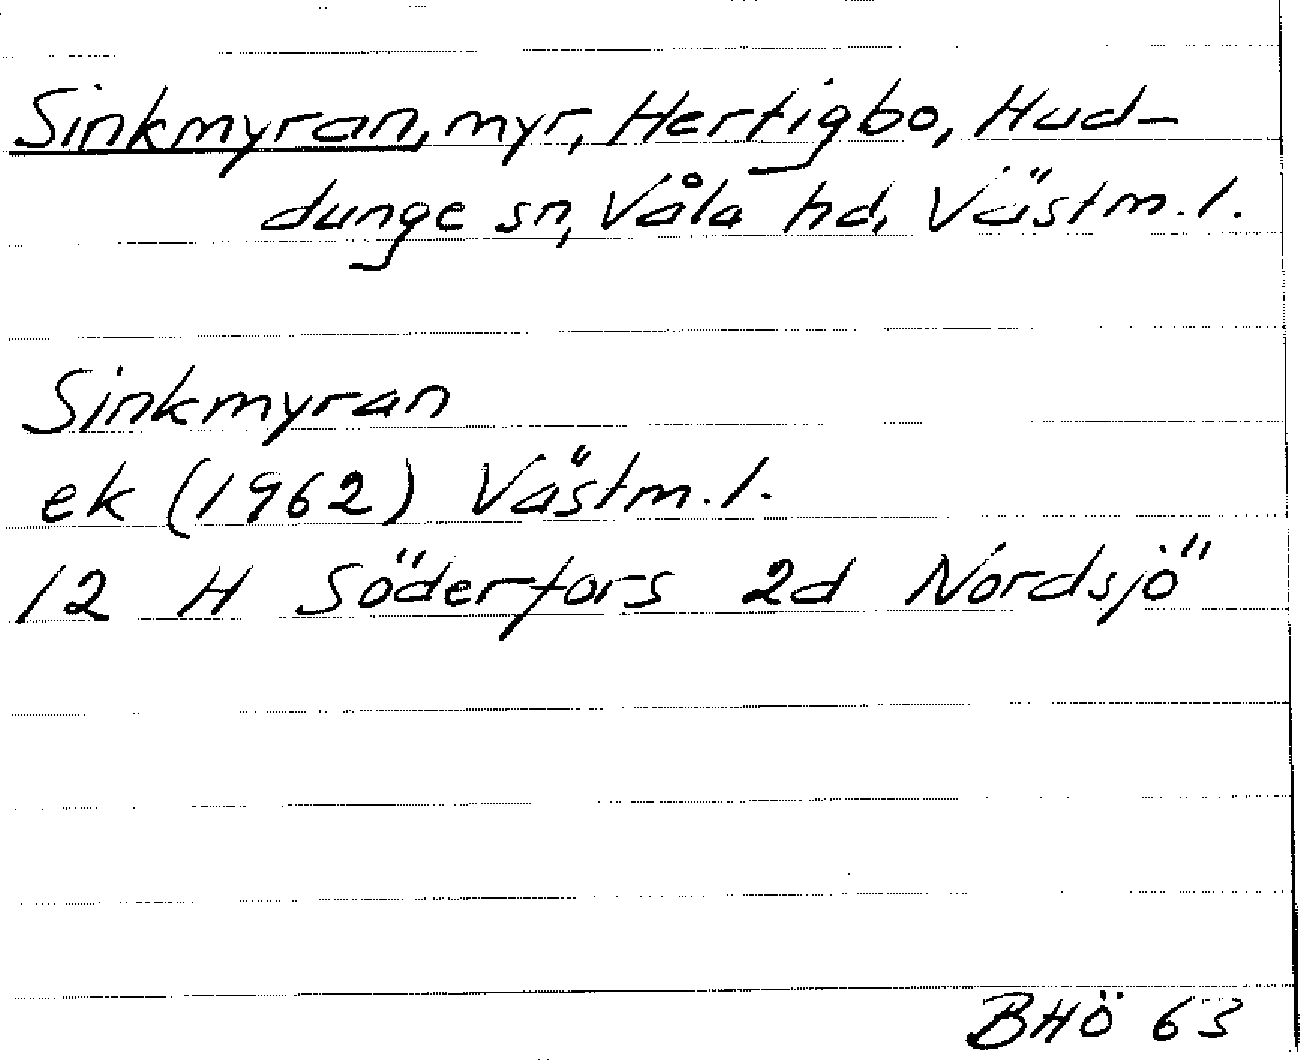 Sinkmyran, myr, Hertigbo, Hud-
dunge sn, Våla hd, Västm. l.
Sinkmyran
ek (1962) Västm. l.
12 H Söderfors 2d Nordsjö
BHÖ 63